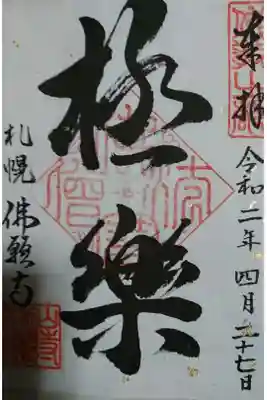 奉拝
令和二年四月二十七日
極樂
札幌佛願寺